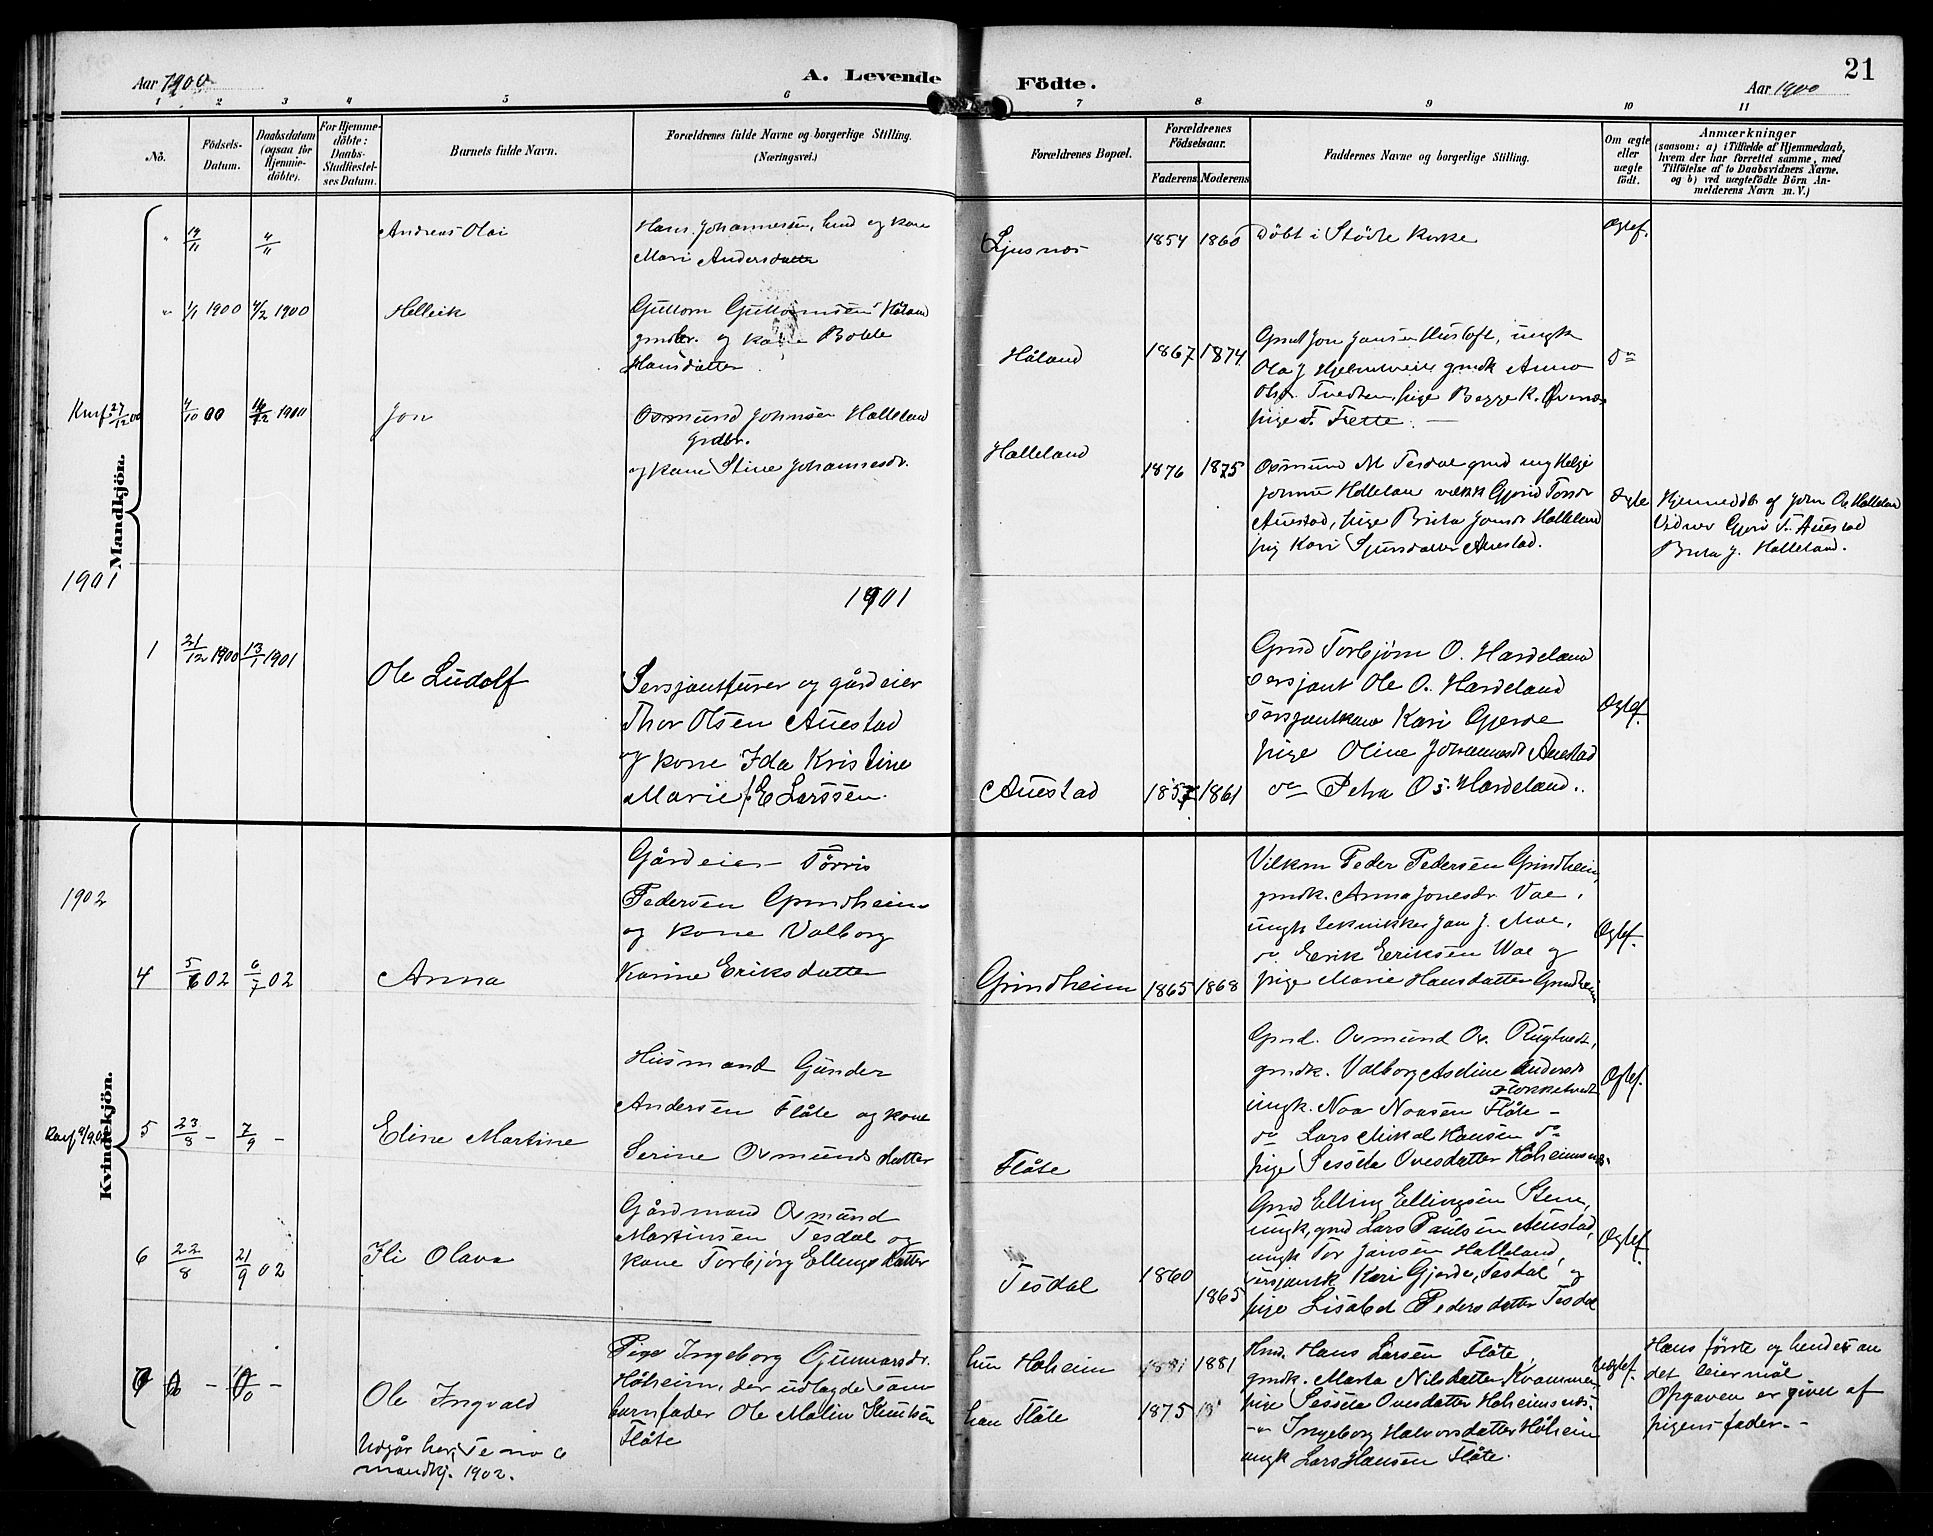 Aar 1900
A. Levende
Födte.
Aar 1900
21
1 2 3 4 5 6 7 8 9 10 11
Nô.
Födsels-
Datum.
Daabsdatum
(ogsaa for
Hjemme-
döbte).
For Hjemme-
döbte:
Daabs-
Stadfæstel-
ses Datum.
Barnets fulde Navn.
Forældrenes fulde Navne og borgerlige Stilling.
(Næringsvei.)
Forældrenes Bopæl.
Forældrenes
Födselsaar.
Faderens Moderens
Faddernes Navne og borgerlige Stilling.
Om ægte
eller
uægte
födt.
Anmærkninger
(saasom: a) i Tilfælde af Hjemmedaab,
hvem der har forrettet samme, med
Tilföielse af to Daabsvidners Navne,
og b) ved uægtefödte Börn An-
melderens Navn m. V.)
Mandkjön.
Andreas Olai
Hans Johannesen, hmd og kone
Mari Andersdatter
Ljusnes
1854 1860
Döbt i Stödle Kirke
Ægtef.
1/1 1900 4/2 1900
Helleik
Guttorm Guttormsen Håland
grdbr. og kone
Hansdatter
Håland
1867 1874
Grmd Jon Jansen Husloft, ungk
Ola J
Olsd. Tvedten, pige
pige
do
Knuf 27/12 00
4/10 00 16/12 1900
Jon
Osmund Johnsen Halleland
grdbr.
og kone Stine Johannesdr.
Halleland
1876 1875
Osmund M Tesdal grmd ung Helje
Auestad, pige Brita Jonsdr Halleland
pig Kari Sjursdatter Auestad.
Ægte
Hjemmedöb af John Os Halleland
Vidner T. Auestad
Brita J. Halleland.
1901
1901
1 21/12 1900 13/1 1901
Ole Ludolf
Sersjantfurer og gårdeier
Thor Olsen Auestad
og kone Ida Kristine
Marie f. E Larssen.
Auestad
1857 1861
Grmd Torbjørn O. Hardeland
Sersjant Ole O. Hardeland
Sersjantkone Kari Gjerde
pige Oline Johannesdr Auestad
do Petra Os. Hardeland.
Ægtef.
Kvindekjön.
1902
4 5/6 02 6/7 02
Anna
Gårdeier Tørris
Pedersen Grindheim
og kone Valborg
Karine Eriksdatter
Grindheim
1865 1868
Peder Pedersen Grindheim,
gmdk. Anna Jonesdr. Vae,
ungk tekniker Jan J. Moe,
do Erik Eriksen Vae og
pige Marie Hansdatter Grindheim
Ægtef.
5 23/8 - 7/9 -
Eline Martine
Husmand Gunder
Andersen Flåte og kone
Serine Osmunds datter
Flåte
Grmd. Osmund Os. Rugtvedt,
gmdk. Valborg Aseline Andersdr
Flokketvedt
ungk. Noa Noasen Flåte -
do Lars Mikal Hansen do
pige Sessela Ovesdatter Høheimsnes.
Ægtef.
6 22/8 21/9 02
Ili Olava
Gårdmand Osmund
Martinsen Tesdal og
kone Torbjørg Ellings datter
Tesdal
1860
1865
Grmd Elling Ellingsen Stene,
ungk, grmd Lars Paulsen Auestad,
ungk Tor Jansen Halleland,
sersjantk Kari Gjerde, Tesdal og
pige Lisabed Pedersdatter Tesdal
Ægtef.
Ole Ingvald
Udgår her, Se no 6
mandkj. 1902.
Pige Ingeborg Gunnarsdr.
Høheim, der udlagde som
barnfader Ole Malin Knutsen
Flåte
hun Høheim
han Flåte
1881 1881
1875
Hmd. Hans Larsen Flåte
gmdk. Marta Nilsdatter Kvammen
pige Sessela Ovesdatter Høheimsnes.
-"- Ingeborg Halvorsdatter Høheim
ungk Lars Hansen Flåte.
Uægtef.
Hans første og hendes an
det leiermål
Opgaven er givet af
pigens fader. -